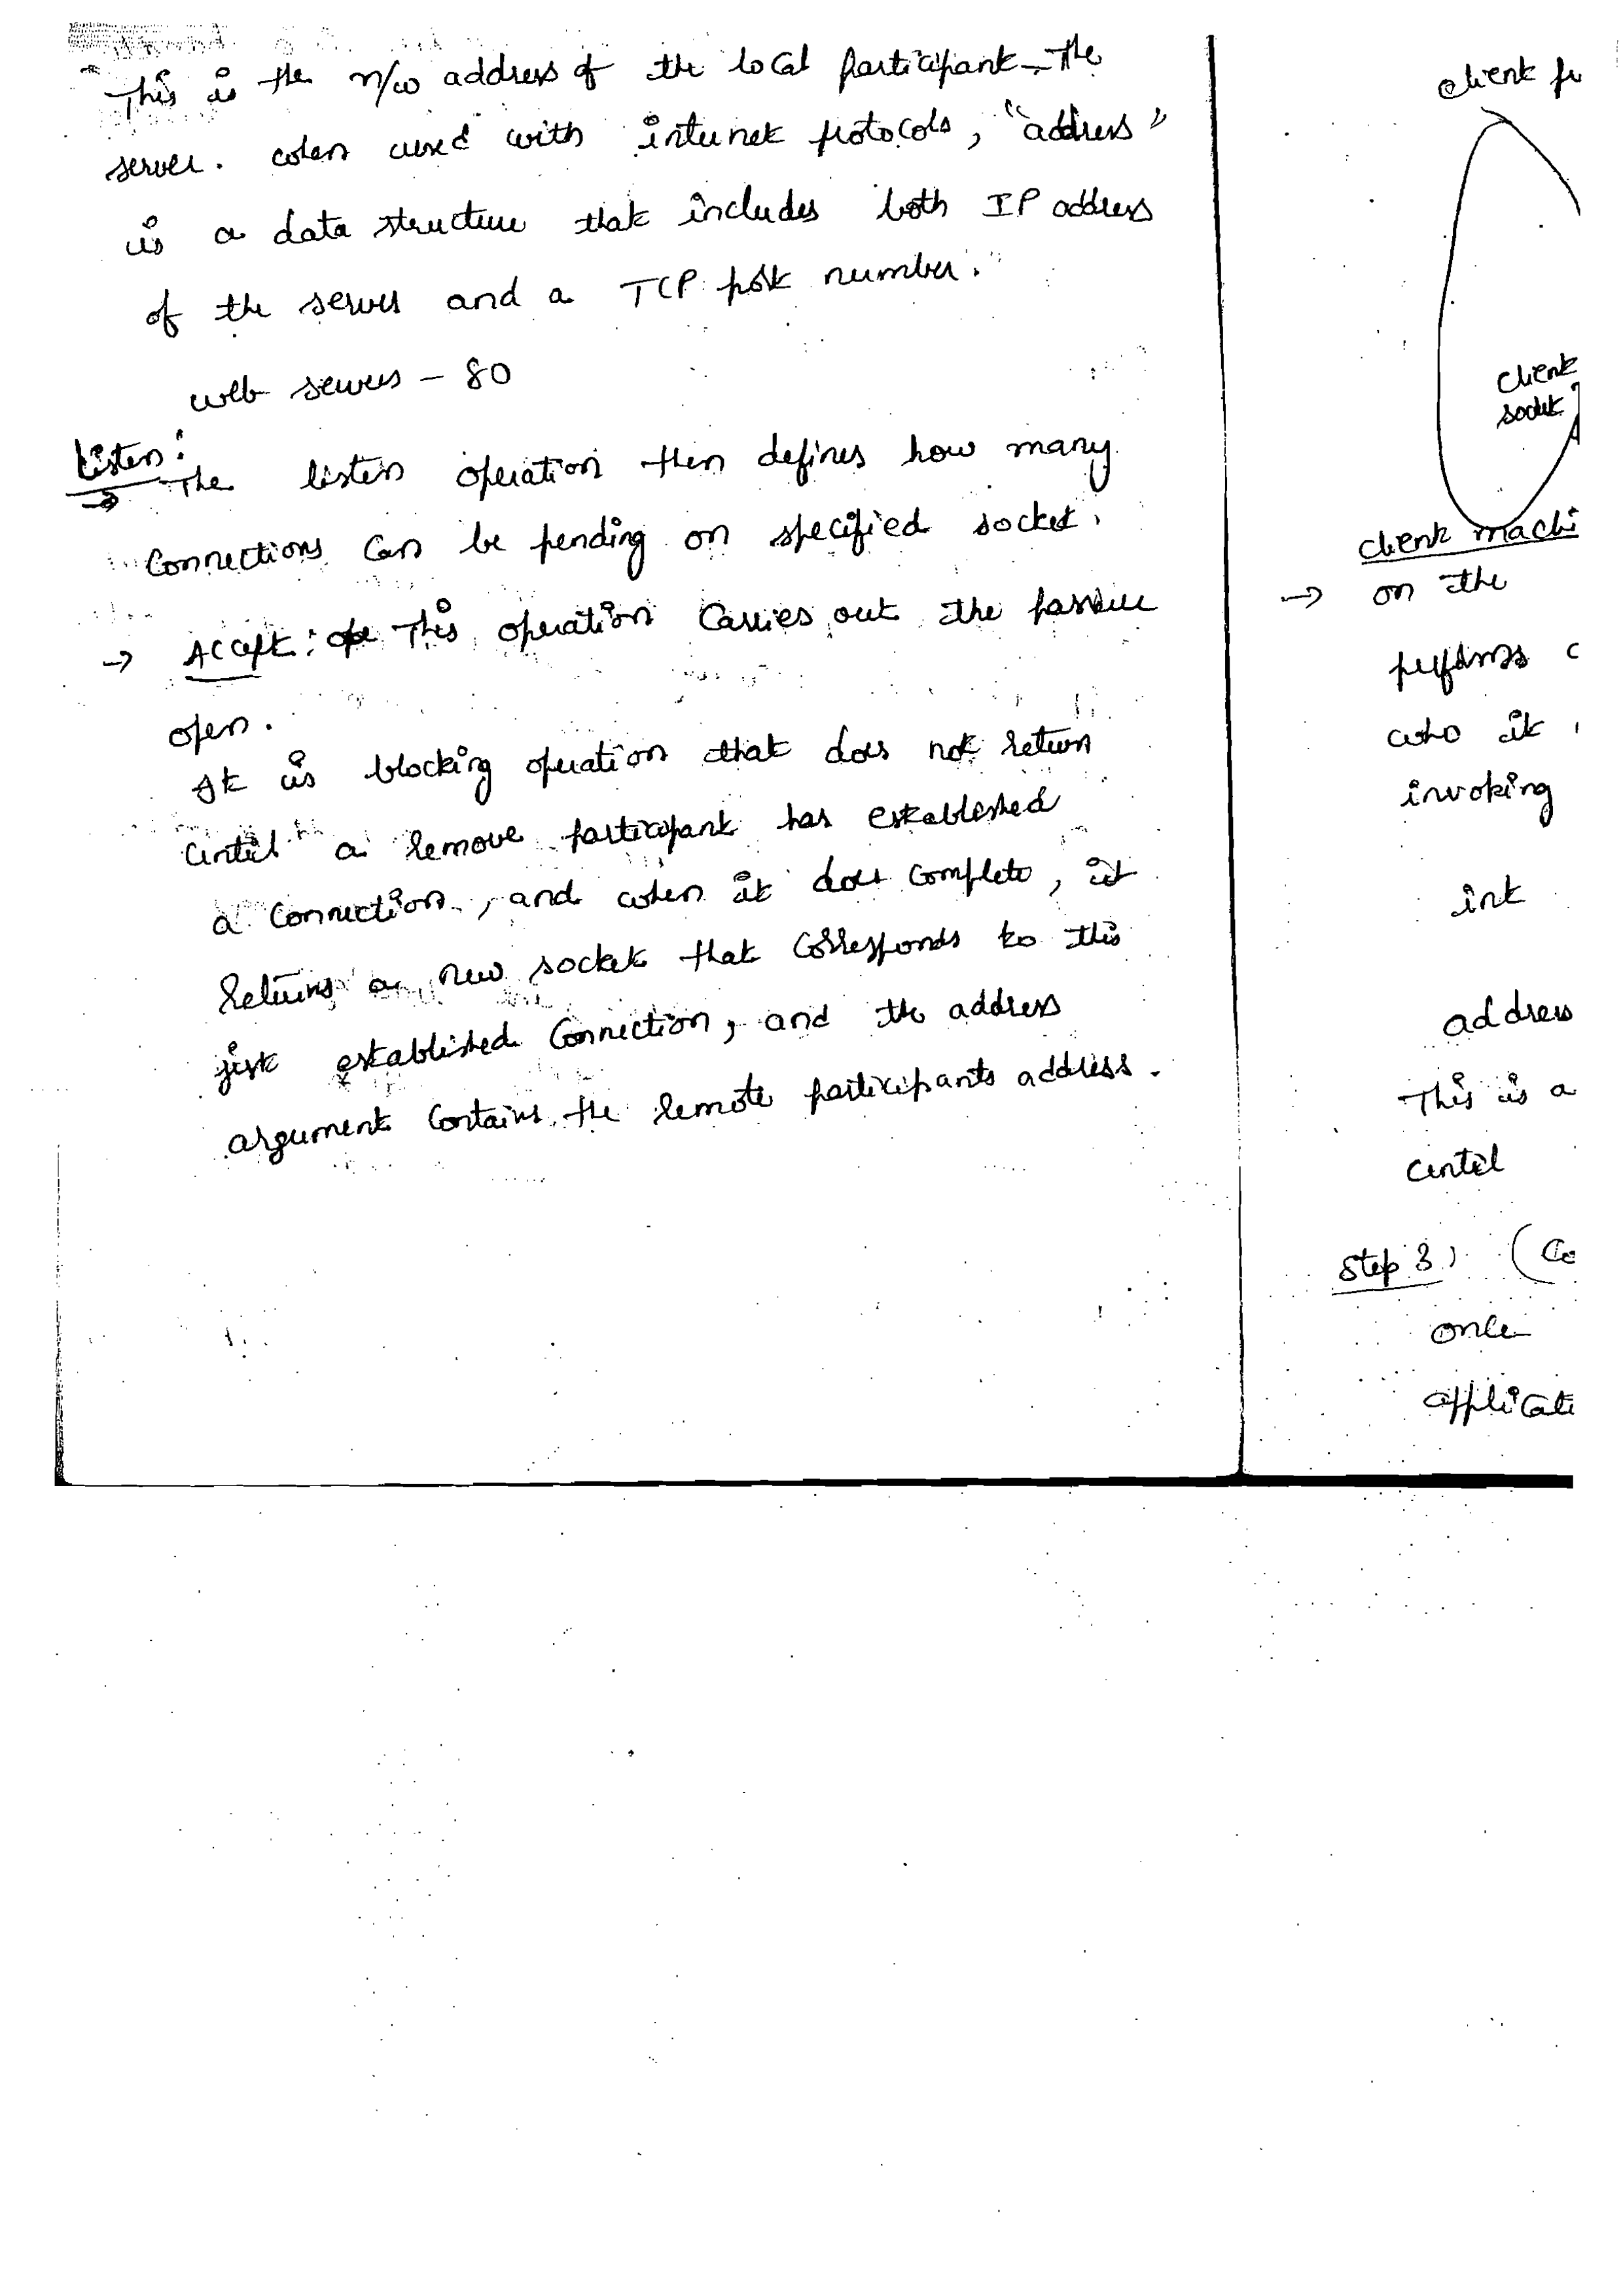 This is the n/w address of the local participant - The
server. when used with internet protocols, "address"
is a data structure that includes both IP address
of the server and a TCP port number.
web servers - 80
Listen:
→ The listen operation then defines how many
Connections Can be pending on specified socket.
→ Accept: This operation Carries out the passive
open.
It is blocking operation that does not return
until a remove participant has established
a Connection, and when it does Complete, it
Returns a new socket that Corresponds to this
just established Connection, and the address
argument Contains the remote participants address.
client
client
socket
client machi
→ on the
performs c
who it
invoking
int
address
This is a
until
Step 3) (Co
once
applicati